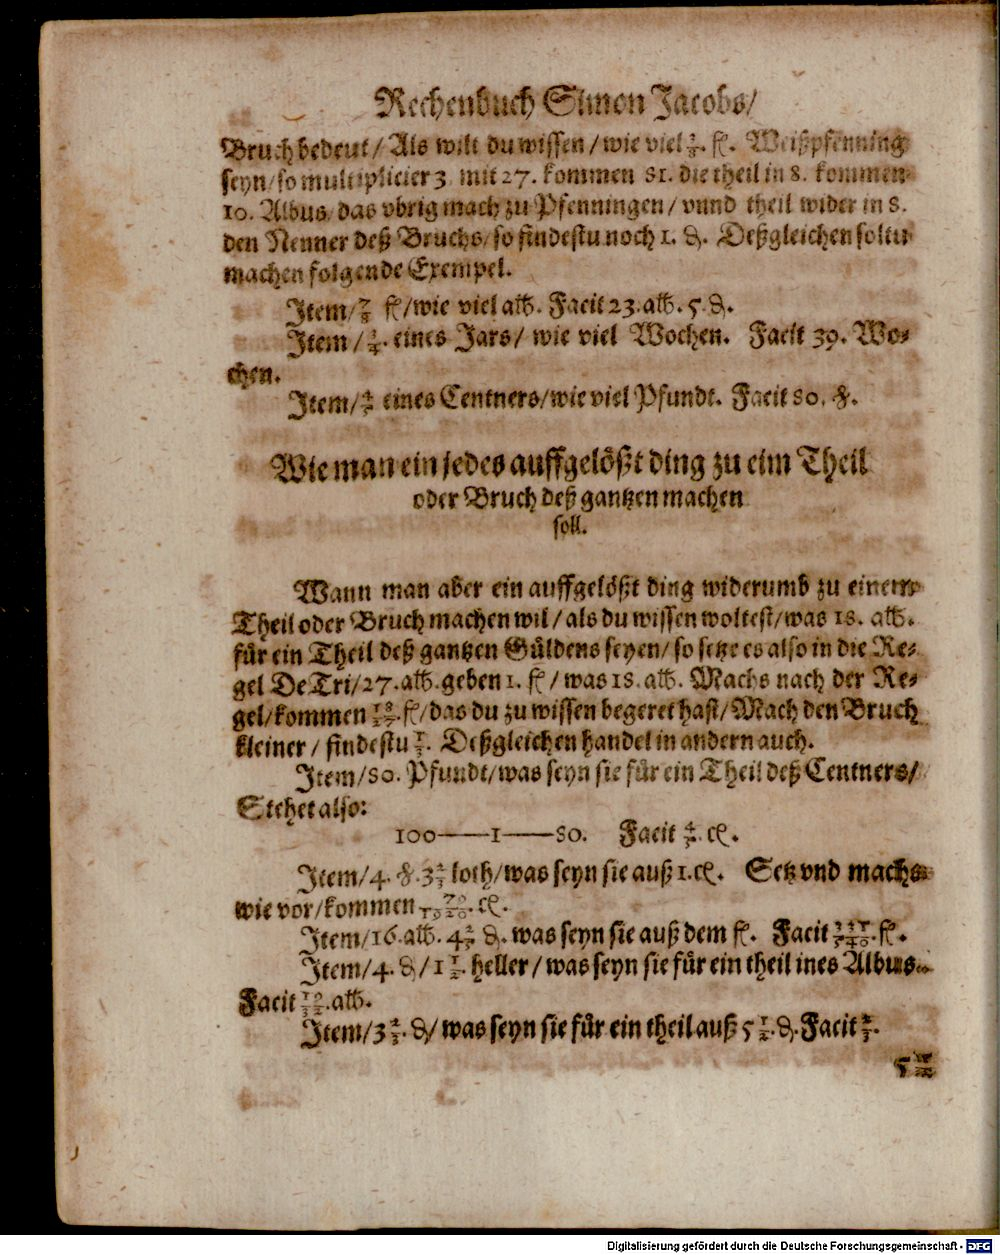 Rechenbuch Simon Jacobs/
Bruch bedeut / Als wilt du wissen / wie viel 3/8. fl. Weißpfenning
seyn/ so multiplicier 3 mit 27. kommen 81. die theil in 8. kommen
10. Albus/ das vbrig mach zu Pfenningen / vnnd theil wider in 8.
den Nenner deß Bruchs/ so findestu noch 1. ₰. Deßgleichen soltu
machen folgende Exempel.
Item/ 7/8 fl/ wie viel alb. Facit 23. alb. 5. ₰.
Item / 3/4. eines Jars / wie viel Wochen. Facit 39. Wo-
chen.
Item/ 4/5 eines Centners/ wie viel Pfundt. Facit 80. ℔.
Wie man ein jedes auffgelößt ding zu eim Theil
oder Bruch deß gantzen machen
soll.
Wann man aber ein auffgelößt ding widerumb zu einem
Theil oder Bruch machen wil / als du wissen woltest/ was 18. alb.
für ein Theil deß gantzen Güldens seyen/ so setze es also in die Re-
gel De Tri/ 27. alb. geben 1. fl / was 18. alb. Machs nach der Re-
gel/ kommen 18/27. fl/ das du zu wissen begeret hast/ Mach den Bruch
kleiner / findestu 2/3. Deßgleichen handel in andern auch.
Item/ 80. Pfundt/ was seyn sie für ein Theil deß Centners/
Stehet also:
100——1——80. Facit 4/5. cl.
Item/ 4. ℔. 3 2/3 loth/ was seyn sie auß 1. cl. Setz vnd machs
wie vor/ kommen
Item/ 16. alb. 4 2/5 ₰. was seyn sie auß dem fl. Facit fl.
Item/ 4. ₰/ 1 1/2. heller / was seyn sie für ein theil ines Albus.
Facit 19/32. alb.
Item/ 3 2/3. ₰/ was seyn sie für ein theil auß 5 1/2. ₰. Facit 2/3.